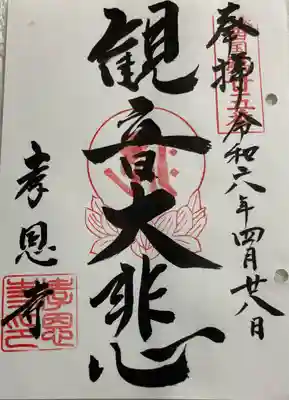 奉拝 令和六年四月廿八日
観音大悲心
孝恩寺